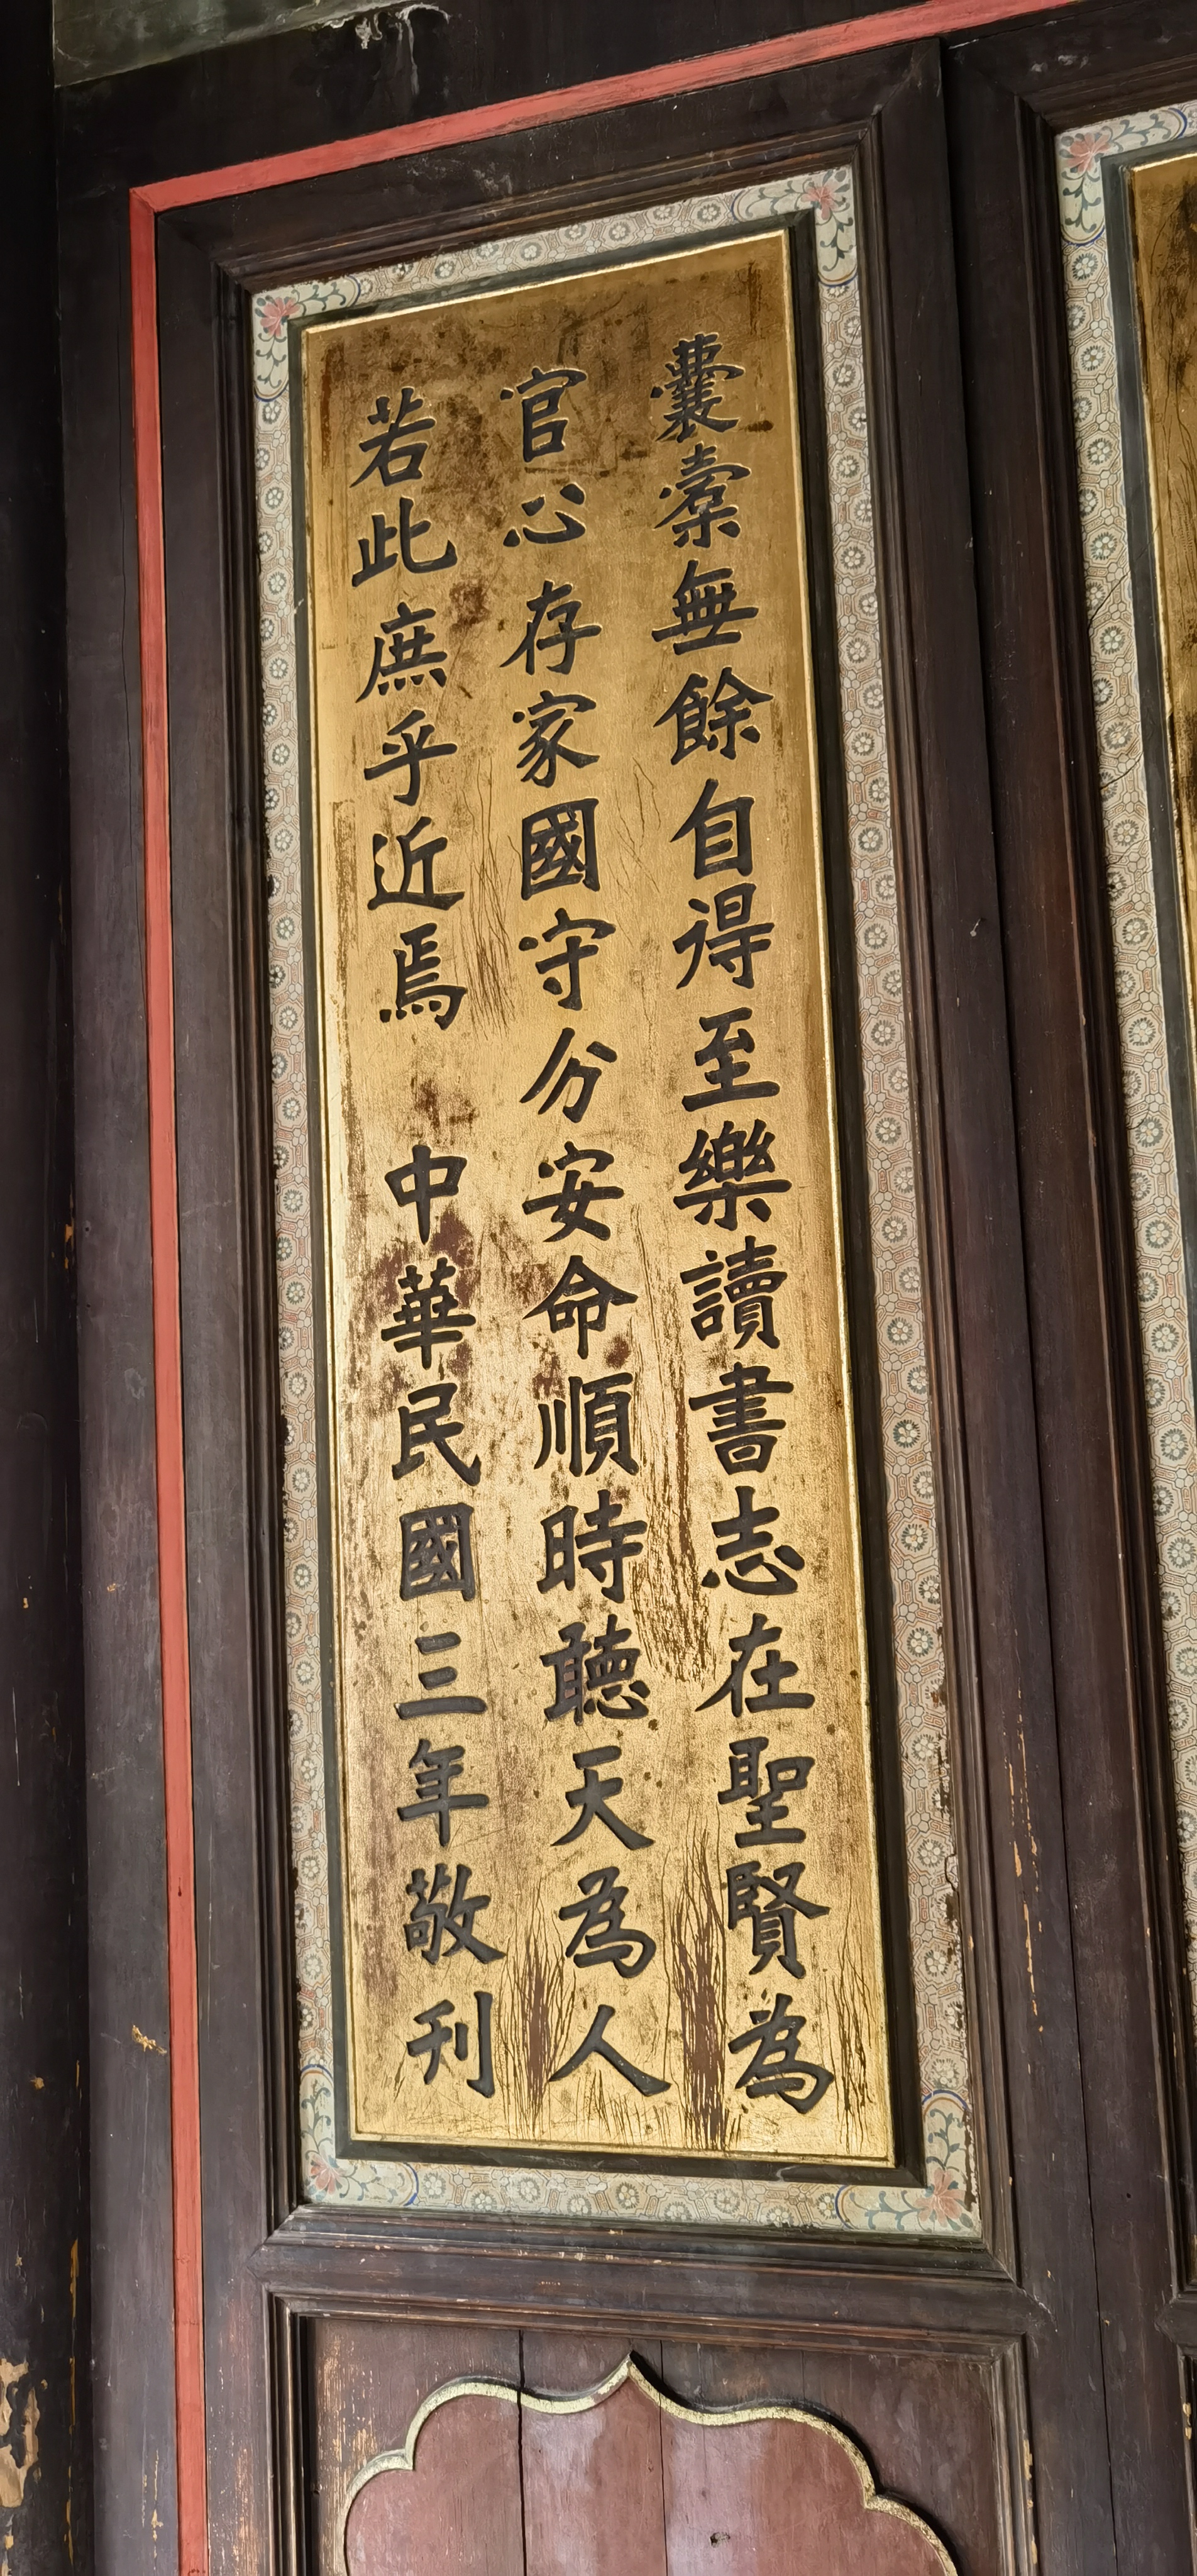 囊橐無餘自得至樂讀書志在聖賢為
官心存家國守分安命順時聽天為人
若此庶乎近焉 中華民國三年敬刊